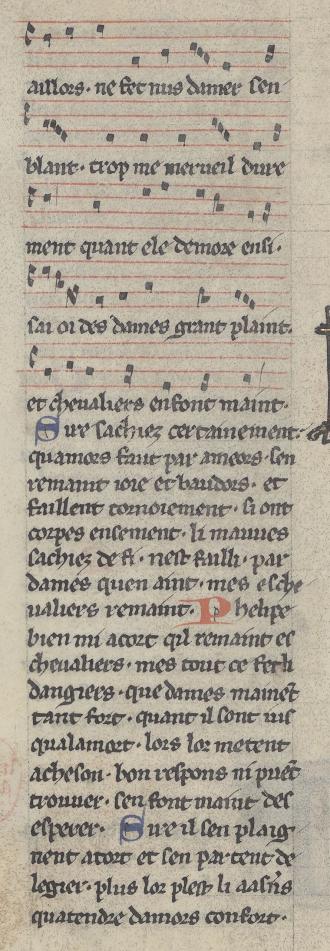 aillors · ne fet nus damer sen
blant · trop me merueil dure
ment quant ele demore ensi ·
sai oi des dames grant plaint ·
et cheualiers en font maint ·
Sire sachiez certainement ·
quamors faut par ameors · sen
remaint ioie et baudors · et
faillent tornoiement · si ont
corpes ensement · li mauues
sachiez de fi · nest failli · par
dames quen aint · mes es che
ualiers remaint · Phelipe
bien mi acort qil remaint es
cheualiers · mes tout ce fet li
dangiers · que dames mainent
tant fort · quant il sont uis
qualamort · lors lor metent
acheson · bon respons ni puet
trouuer · sen font maint des
esperer · Sire il sen plaig
nent atort et sen partent de
legier · plus lor plest li
quatendre damors confort ·